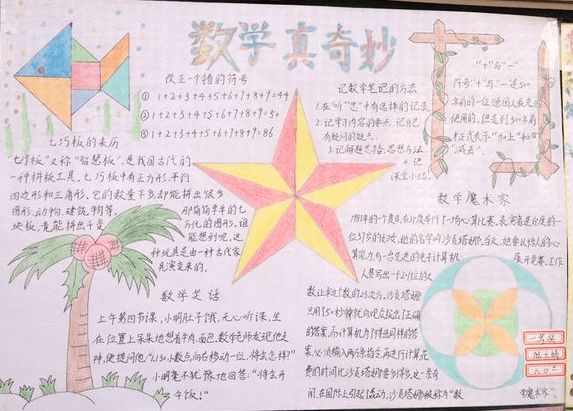 数学真奇妙
改正一个错的符号
① 1+2+3+4+5+6+7+8+9=44
② 1+2+3+4+5+6+7+8+9=50
③ 1+2+3+4+5+6+7+8+9=86
七巧板的来历
七巧板又称"智慧板",是我国古代的
一种拼板工具。七巧板中有正方形,平行
四边形和三角形。它的数量不多却能拼出很多
图形,动物,建筑,物等。
那简简单单的七
块板,竟能拼出千变
万化的图形。谁
能想到呢,这
种玩具是由一种古代家
具演变来的。
记数学笔记的方法
1.在"听""思"中有选择的记录
2.记学习内容的要点,记自己
有疑问的疑点。
3.记解题思路,思想方法。
4.记
课堂小结。
"+"与"-"
符号"+"与"-"是500
年前的一位德国人最先
使用的,
才正式表示"加上"和
"减去"。
数学笑话
上午第四节课,小明肚子饿,无心听课,坐
在位置上呆呆地想着牛肉,面包,数学老师发现他走
神,便提问他"1.130小数点向右移动一位,将会怎样?"
小明毫不犹豫地回答:"将会开
午饭!"
数学魔术家
1981年的一个夏日,在印度举行了一场心算比赛,表演者是印度的一
位37岁的妇女,她的名字叫沙贡塔娜,当天,她要以惊人的心
算能力,与一台先进的电子计算机
展开竞赛,工作
人员写出一个201位的大
数,让求这个数的23次方,沙贡塔娜
只用50秒钟就向观众报出了正确
的答案,而计算机为了得出同样的答
案,必须输入两万条指令,再进行计算,花
费的时间比沙贡塔娜要多得多,这一奇
闻,在国际上引起了轰动,沙贡塔娜被称为"数
学魔术家"。